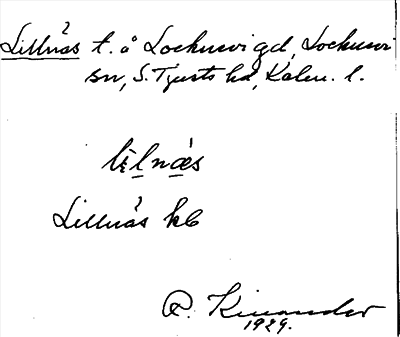 Lillnäs t. å Locknevi gd, Locknevi
sn, S. Tjusts hd, Kalm. l.
lìlnæ̀s
Lillnäs hb
R. Kinander
1929.